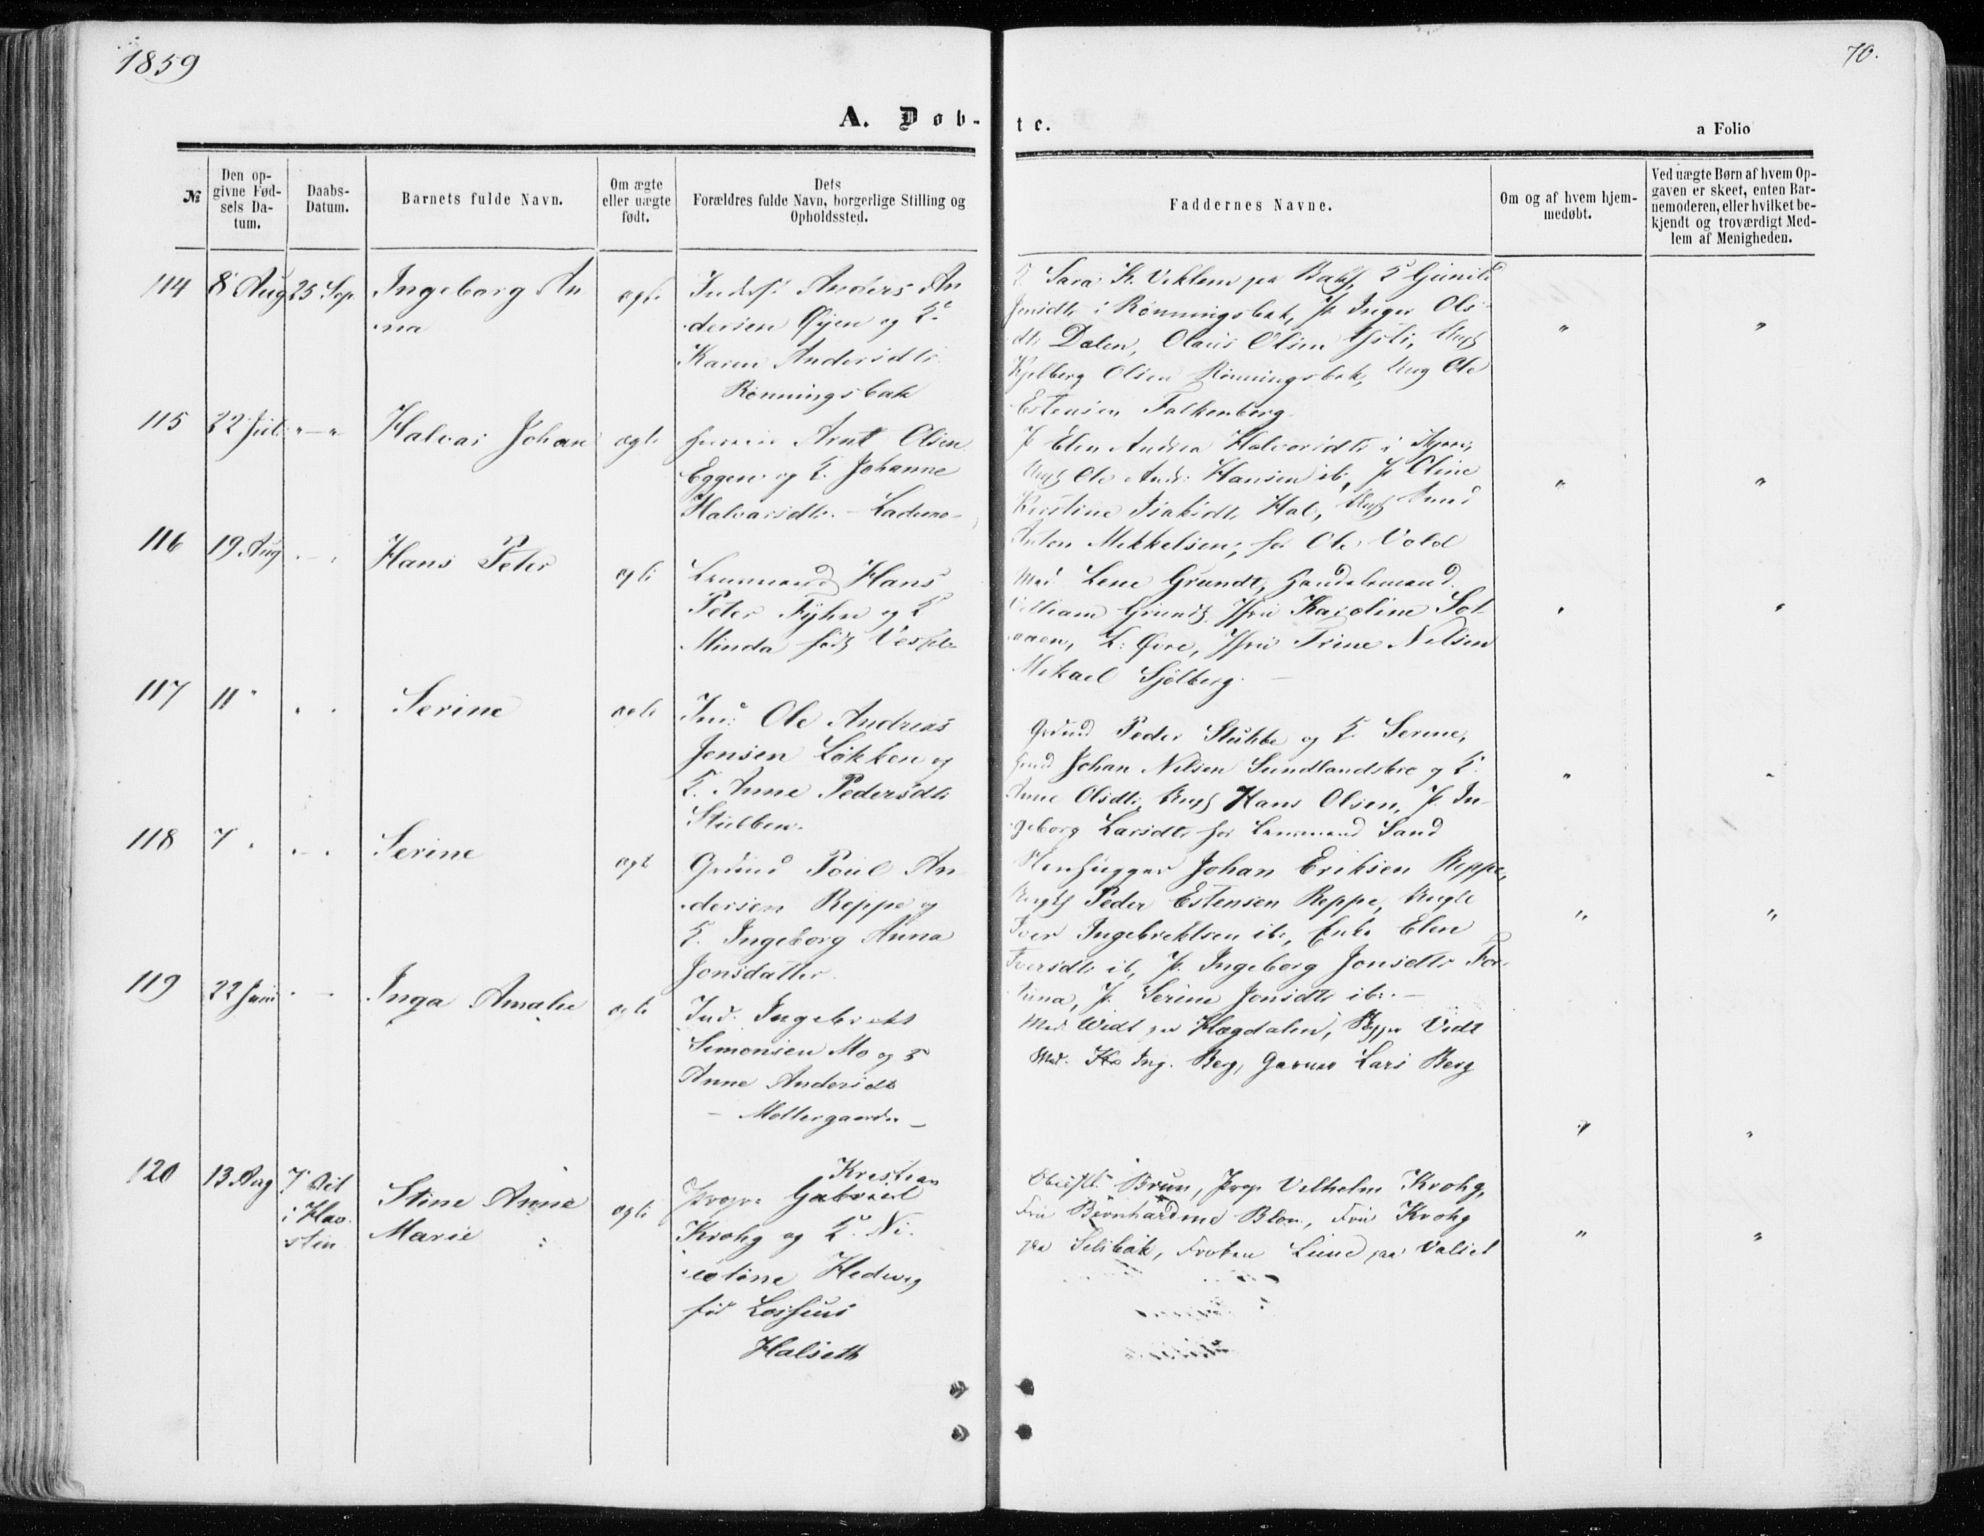 1859
70.
A. Døb-
te.
a Folio
№
Den op-
givne Fød-
sels Da-
tum.
Daabs-
Datum.
Barnets fulde Navn.
Om ægte
eller uægte
født.
Dets
Forældres fulde Navn, borgerlige Stilling og
Opholdssted.
Faddernes Navne.
Om og af hvem hjem-
medøbt.
Ved uægte Børn af hvem Op-
gaven er skeet, enten Bar-
nemoderen, eller hvilket be-
kjendt og troværdigt Med-
lem af Menigheden.
114
8 Aug
25 Sep.
Ingeborg An
na
ægte
Anders An
dersen Øyen og K.
Karen Andersdtr
Rønningsbak
K. Sara K. Viklem paa Bakk, K Gunild
Jonsdtr i Rønningsbak, P. Inger Ols
dtr Dalen, Olaus Olsen
Olsen Rønningsbak, Ung Ole
Estensen Falkenberg
115
22 Juli
Halvar Johan
ægte
Arnt Olsen
Eggen og K. Johanne
Halvarsdtr. - Lademo -
P Elen Andrea Halvorsdtr i
Ungk Ole Andr: Hansen ib, P. Oline
Kirstine Isaksdtr Hal, Ungk
Anton Mikkelsen, for Ole Vold
116
19 Aug
Hans Peter
ægte
Lensmand Hans
Peter Fyhn og K
Minda født
Mad. Lene Grundt, Handelsmand
William Grundt, Jfru Karoline Sol
K: Øvre, Jfru Trine Nilsen
Mikael Sjølberg.
117
11 "
Serine
ægte
Ind: Ole Andreas
Jensen Løkken og
K. Anne Pedersdtr
Stubben.
Grdmd Peder Stubbe og K. Serine,
Johan Nilsen Sundlandsbro og K.
Anne Olsdtr, Ungk Hans Olsen, P. In-
geborg Larsdtr for Lensmand Sand
118
7 "
Serine
ægt
Grdmd Poul An
dersen Reppe og
K. Ingeborg Anna
Jonsdatter
Stenhugger Johan Eriksen Reppe,
Ungk Peder Estensen Reppe, Ungk
Iver Ingebrektsen ib:, Enke Elen
Iversdtr ib, P. Ingeborg Jonsdtr For
P. Serine Jonsdtr ib:. -
119
22 Juni
Inga Amalie
ægte
Ind: Ingebrekt
Simonsen Mo og K
Anne Andersdt
- Mollergaarden -
Mad. Widt paa Hægdalen, Vidt
Mad. Ing. Berg, Garver Lars Berg
120
13 Aug
7 Okt
i Hav-
stin
Stine Anne
Marie
ægte
Kristian
Propr. Gabriel
Krohg og K. Ni-
coline Hedevig
fød Lossius
Halseth
Brun, Prop Vilhelm Krohg,
Fru Bernhardine Blom, Fru Krohg
paa Selsbak, Froken Lund paa Valset